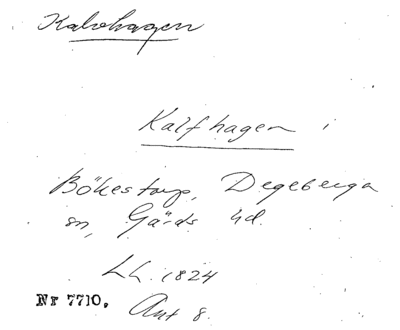 Kalvhagen
Kalfhagen i
Bökestorp, Degeberga
sn, Gärds hd.
LL. 1824
Nr 7710. Akt 8.